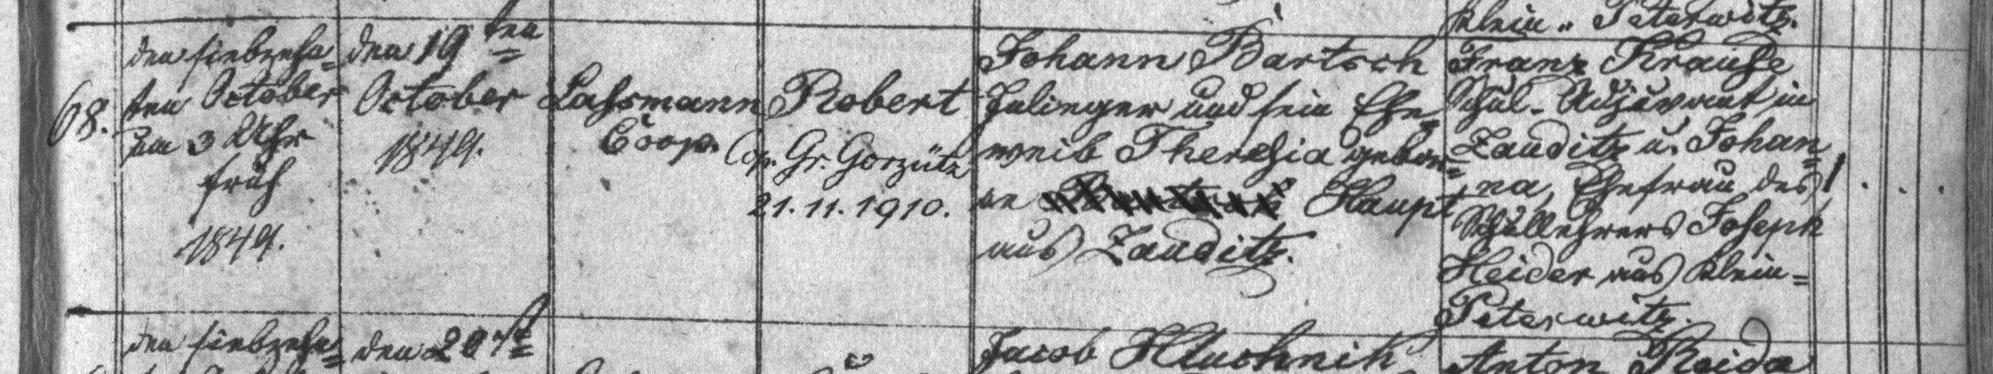 klein-Peterwitz.
68.
den siebzehn=
ten October
um 3 Uhr
früh
1849.
den 19ten
October
1849.
Lassmann
Coop.
Robert
Cop. Gr. Gorzütz
21.11.1910.
Johann Bartsch
Inlieger und sein Ehe=
weib Theresia gebor=
ne Haupt
aus Zauditz.
Franz Krause
Schul-Adjuvant in
Zauditz u. Johan=
na, Ehefrau des
Schullehrers Joseph
Heider aus klein=
Peterwitz.
1 . . .
den siebzehn=
den 20st
Jacob
Anton